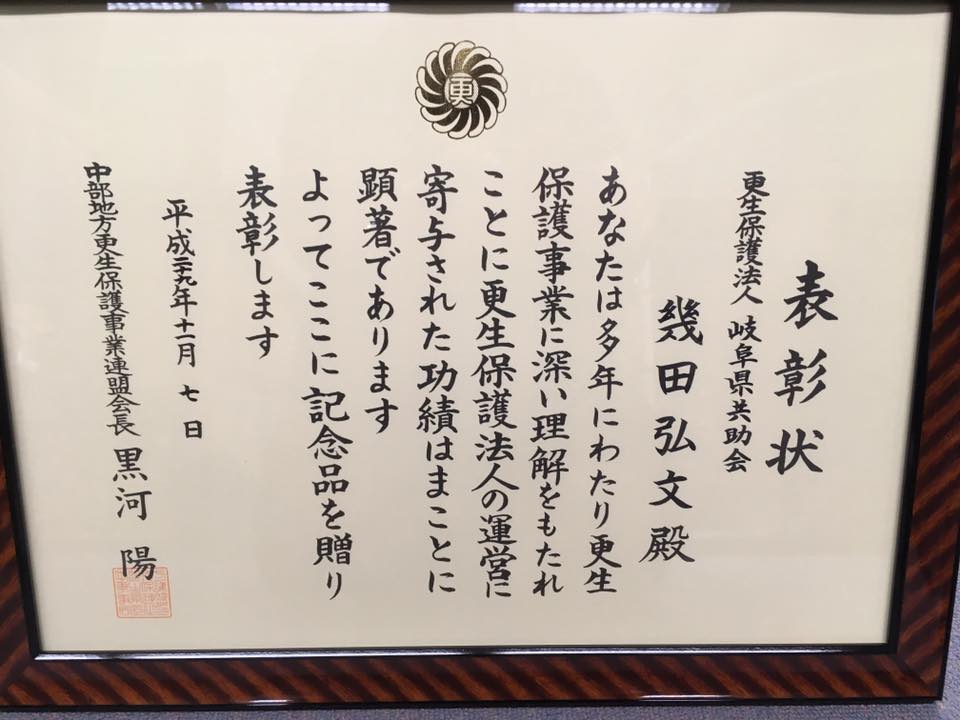 更
表彰状
更生保護法人 岐阜県共助会
幾田弘文殿
あなたは多年にわたり更生
保護事業に深い理解をもたれ
ことに更生保護法人の運営に
寄与された功績はまことに
顕著であります
よってここに記念品を贈り
表彰します
平成二十九年十一月 七 日
中部地方更生保護事業連盟会長 黒河 陽